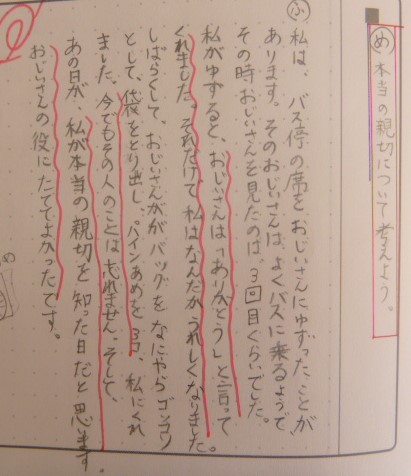 め 本当の親切について考えよう。
ふ 私は、バス停の席をおじいさんにゆずったことが、
あります。そのおじいさんは、よくバスに乗るようで、
その時おじいさんを見たのは、3回目くらいでした。
私がゆずると、おじいさんは、「ありがとう」と言って
くれました。それだけで私はなんだかうれしくなりました。
しばらくして、おじいさんががバッグをなにやらゴソゴソ
として、袋をとり出し、パインあめを3コ、私にくれ
ました。今でもその人のことは、忘れません。そして、
あの日が、私が本当の親切を知った日だと思います。
おじいさんの役にたててよかったです。